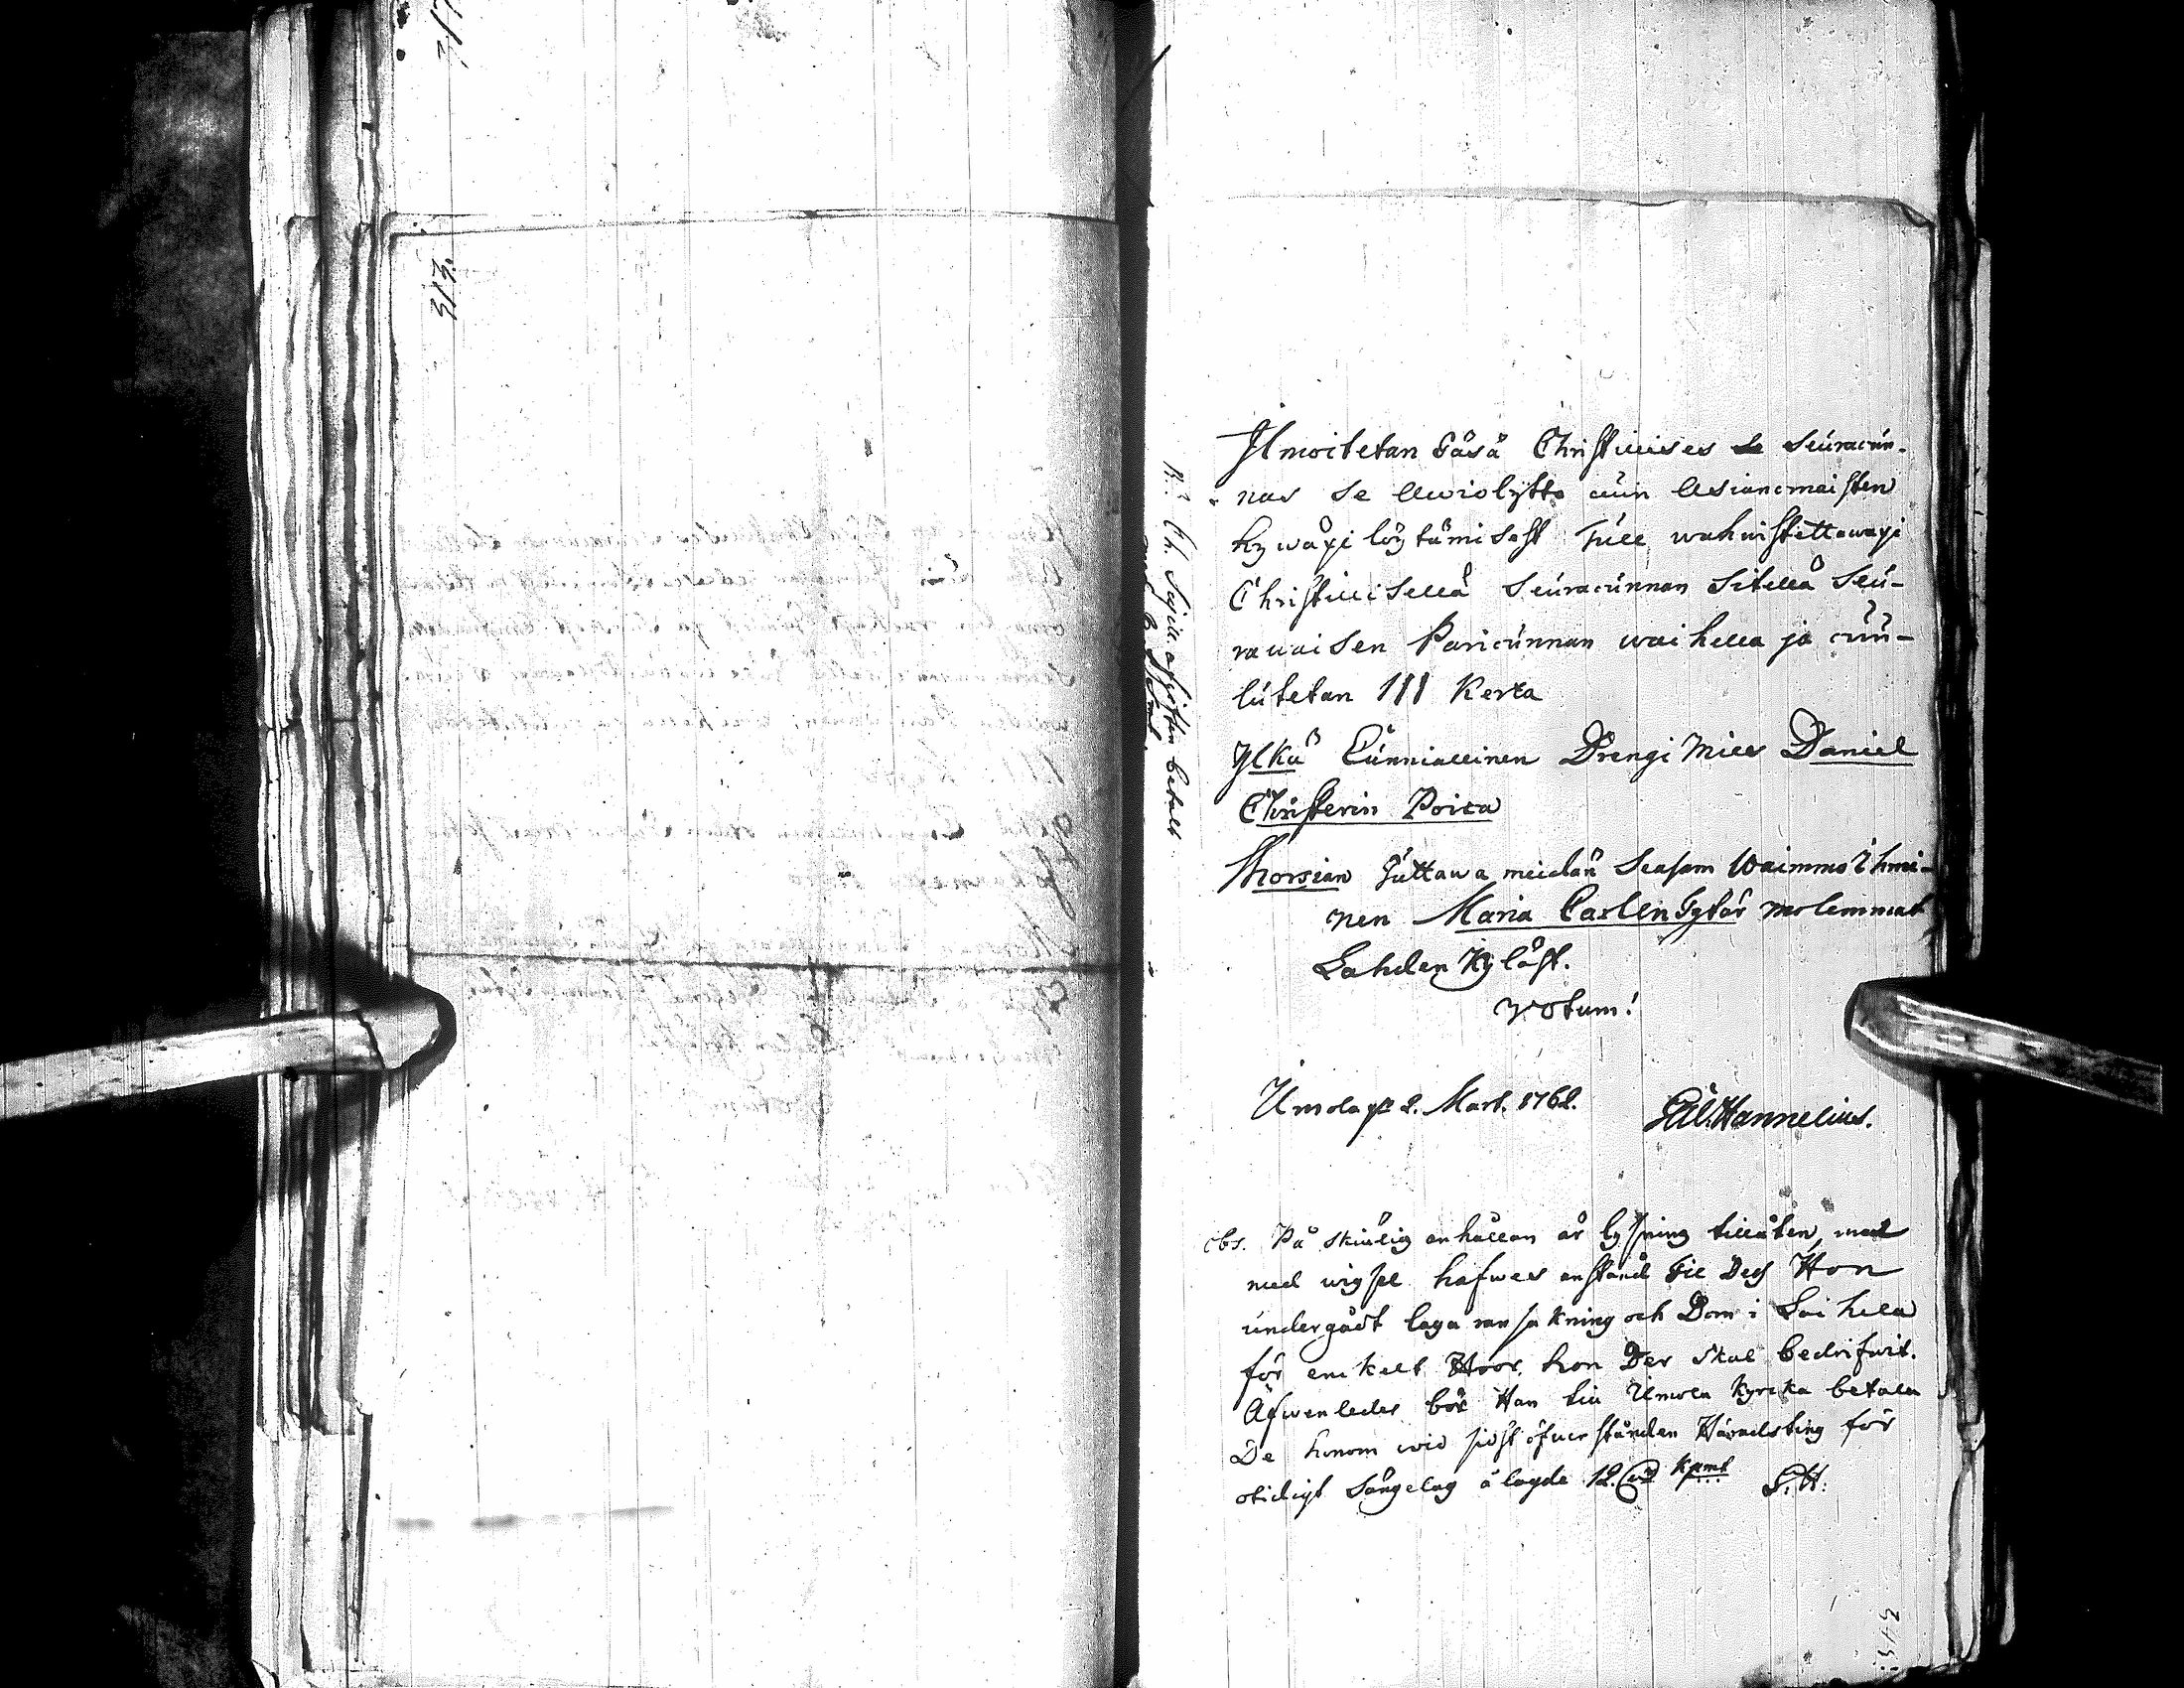 313.
Ilmoitetan Täsä Christillises se Seuracun-
nas se Awiolijtto cuin Asianomaisten
hywäxi löytämisest Tulee wahwistettawaxi
Christillisellä Seuracunnan Sitellä Seu-
rawaisen Paricunnan waihella ja cuu-
lutetan 111 Kerta
Ylkä Cunniallinen Drengi Mies Daniel
Christerin Poica
Morsian Juttawa meidän Seasam Waimmo Ihmi-
nen Maria Carlen Tytär molemmat
Lahden Kyläst.
Votum!
Umola 2. Mart. 1762.
Hannelius.
obs. På skiälig anhållan är lysning tillåten, men
med wigsel hafwes anstånd til Dess Hon
undergådt laga ransakning och Dom i Laihela
för enkelt Hoor. hon Der skal bedrifwit.
Äfwenledes bör Han till Umola Kyrcka betala
De honom wid sidst öfwerståndne Häradsting för
otidigt Sängelag ålagde 12. Kpmt
Ch. Sigill. afgiften betalt